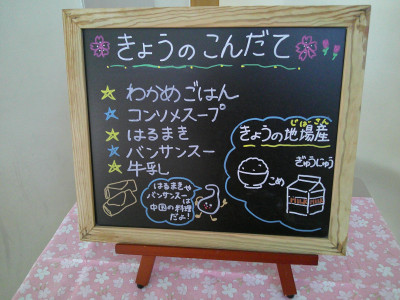 きょうのこんだて
わかめごはん
コンソメスープ
はるまき
バンサンスー
牛乳
きょうの地場産
じばさん
こめ
ぎゅうにゅう
はるまきや
バンサンスー
は
中国の料理
だよ!